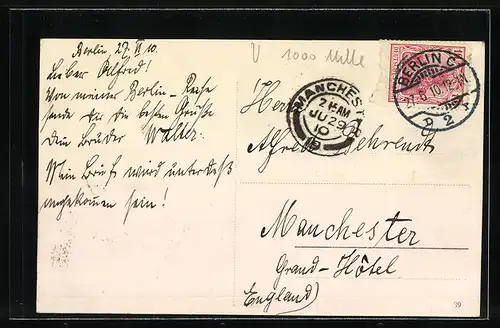 Berlin, 27. VI 10.
Lieber Alfred!
Von meiner Berlin-Reise
sende dir die besten Grüße
dein Bruder Walter.
Mein Brief wird unterdeß
angekommen sein!
V 1000 Mille
BERLIN C.
27.6.10.12-1N.
2
MANCHESTER
2 15 AM
JU 29
10
19
Herrn
Alfred Behrendt
Manchester
Grand-Hôtel
(England)
39